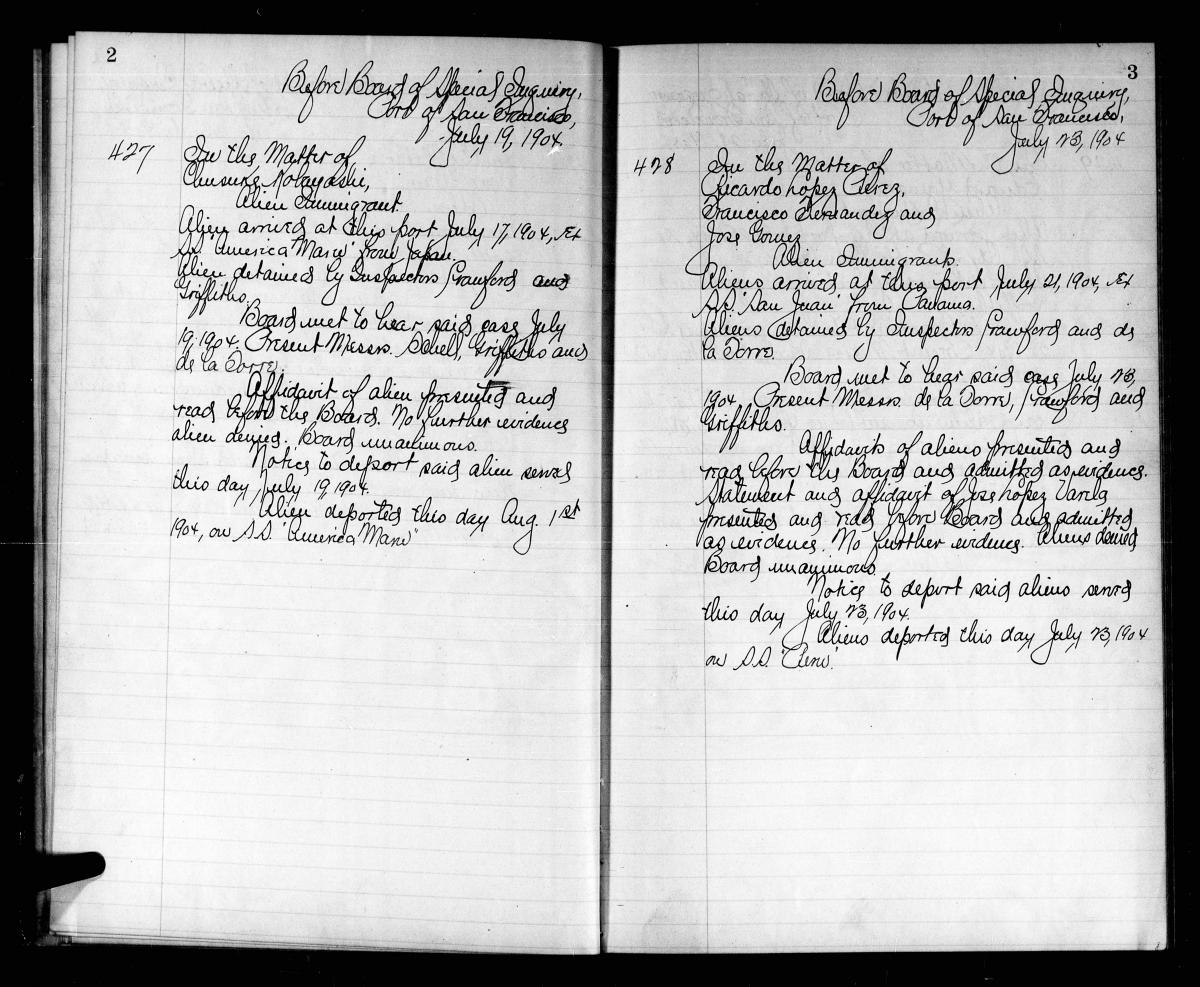 2
Before Board of Special Inquiry,
Port of San Francisco,
July 19, 1904.
427
In the Matter of
Chusuke Kobayashi,
Alien Immigrant.
Alien arrived at this port July 17, 1904, Ex
S.S. "America Maru" from Japan.
Alien detained by Inspectors Crawford and
Griffiths.
Board met to hear said case July
19, 1904, Present Messrs. Schell, Griffiths and
de la Torre.
Affidavit of alien presented and
read before the Board. No further evidence
alien denied. Board unanimous.
Notice to deport said alien served
this day July 19, 1904.
Alien deported this day Aug. 1st
1904, on S.S. "America Maru"
3
Before Board of Special Inquiry,
Port of San Francisco,
July 23, 1904
428
In the Matter of
Ricardo Lopez Perez,
Francisco Fernandez and
Jose Gomez
Alien Immigrants.
Aliens arrived at this port July 21, 1904, Ex
S.S. "San Juan" from Panama.
Aliens detained by Inspectors Crawford and de
la Torre.
Board met to hear said case July 23,
1904, Present Messrs. de la Torre, Crawford and
Griffiths.
Affidavits of aliens presented and
read before the Board and admitted as evidence.
Statement and affidavit of Jose Lopez Varela
presented and read before Board and admitted
as evidence. No further evidence. Aliens denied
Board unanimous.
Notice to deport said aliens served
this day July 23, 1904.
Aliens deported this day July 23, 1904
on S.S. "Peru".